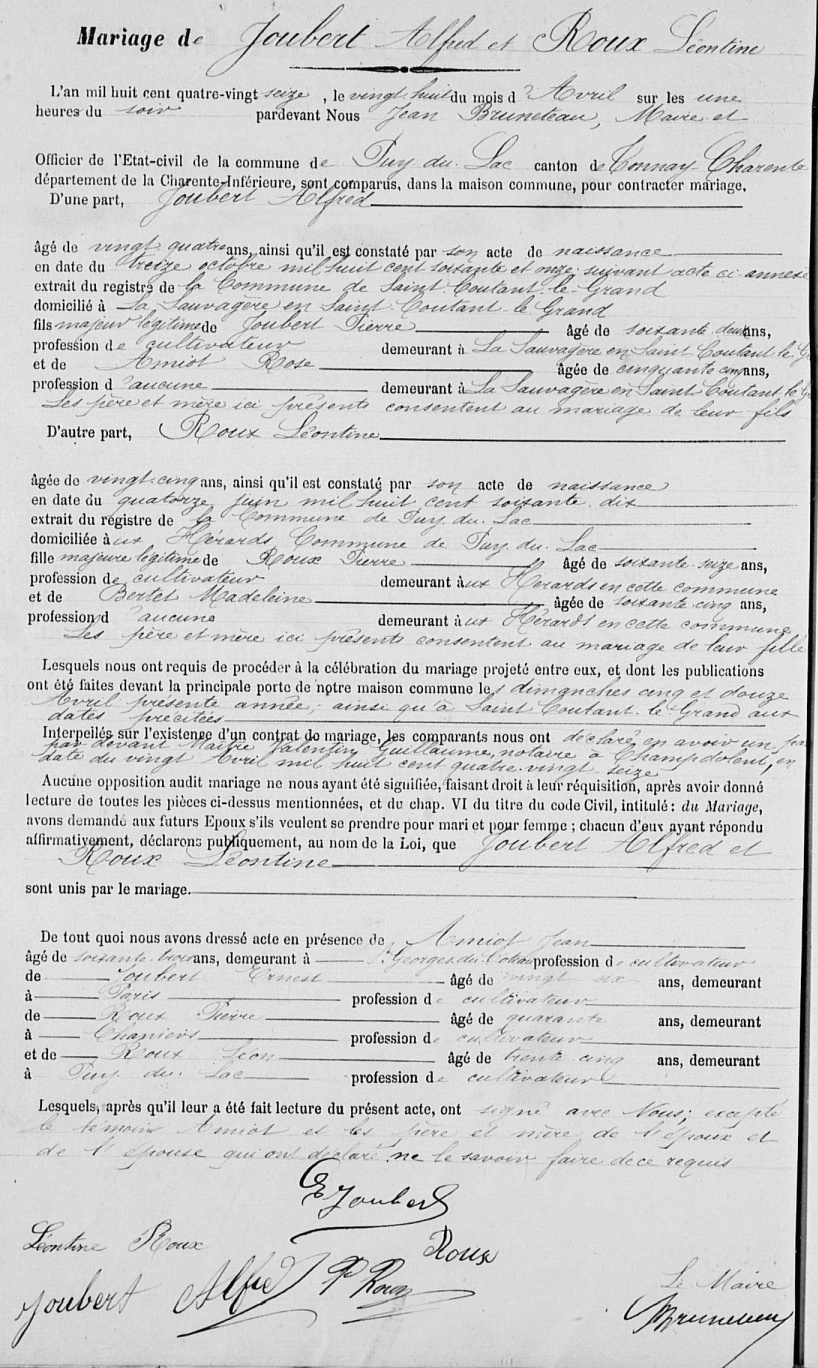 Mariage de Joubert Alfred et Roux Léontine
L'an mil huit cent quatre-vingt seize, le vingt huit du mois d'Avril sur les une
heures du soir pardevant Nous Jean Bruneteau, Maire et
Officier de l'Etat-civil de la commune de Puy du Lac canton de Tonnay-Charente
département de la Charente-Inférieure, sont comparus, dans la maison commune, pour contracter mariage,
D'une part, Joubert Alfred
âgé de vingt quatre ans, ainsi qu'il est constaté par son acte de naissance
en date du treize octobre mil huit cent soixante et onze suivant acte ci-annexé
extrait du registre de la Commune de Saint-Coutant-le-Grand
domicilié à La Sauvagère en Saint-Coutant-le-Grand
fils majeur légitime de Joubert Pierre âgé de soixante deux ans,
profession de cultivateur demeurant à La Sauvagère en Saint-Coutant-le-G
et de Amiot Rose âgée de cinquante cinq ans,
profession d'aucune demeurant à La Sauvagère en Saint-Coutant-le-G
Les père et mère ici présents consentent au mariage de leur fils
D'autre part, Roux Léontine
âgée de vingt-cinq ans, ainsi qu'il est constaté par son acte de naissance
en date du quatorze juin mil huit cent soixante-dix
extrait du registre de la Commune de Puy-du-Lac
domiciliée aux Hérards Commune de Puy-du-Lac
fille majeure légitime de Roux Pierre âgé de soixante-seize ans,
profession de cultivateur demeurant aux Hérards en cette commune
et de Bertet Madeleine âgée de soixante cinq ans,
profession d'aucune demeurant aux Hérards en cette commune
Les père et mère ici présents consentent au mariage de leur fille
Lesquels nous ont requis de procéder à la célébration du mariage projeté entre eux, et dont les publications
ont été faites devant la principale porte de notre maison commune les dimanches cinq et douze
Avril présente année, ainsi qu'à Saint-Coutant-le-Grand aux
dates précitées
Interpellés sur l'existence d'un contrat de mariage, les comparants nous ont déclaré en avoir un
par devant Maître Valentin Guillaume, notaire à Champdolent, en
date du vingt Avril mil huit cent quatre-vingt seize
Aucune opposition audit mariage ne nous ayant été signifiée, faisant droit à leur réquisition, après avoir donné
lecture de toutes les pièces ci-dessus mentionnées, et du chap. VI du titre du code Civil, intitulé : du Mariage,
avons demandé aux futurs Epoux s'ils veulent se prendre pour mari et pour femme ; chacun d'eux ayant répondu
affirmativement, déclarons publiquement, au nom de la Loi, que Joubert Alfred et
Roux Léontine
sont unis par le mariage.
De tout quoi nous avons dressé acte en présence de Amiot Jean
âgé de soixante trois ans, demeurant à St Georges du profession de cultivateur
de Joubert Ernest âgé de vingt six ans, demeurant
à Paris profession de cultivateur
de Roux Pierre âgé de quarante ans, demeurant
à Chaniers profession de cultivateur
et de Roux Léon âgé de trente cinq ans, demeurant
à Puy du Lac profession de cultivateur
Lesquels, après qu'il leur a été fait lecture du présent acte, ont signé avec Nous; excepté
le témoins Amiot et les père et mère de l'époux et
de l'épouse qui ont déclaré ne le savoir faire de ce requis
E Joubert
Léontine Roux Roux
Joubert Alfred P Roux
Le Maire
Bruneteau